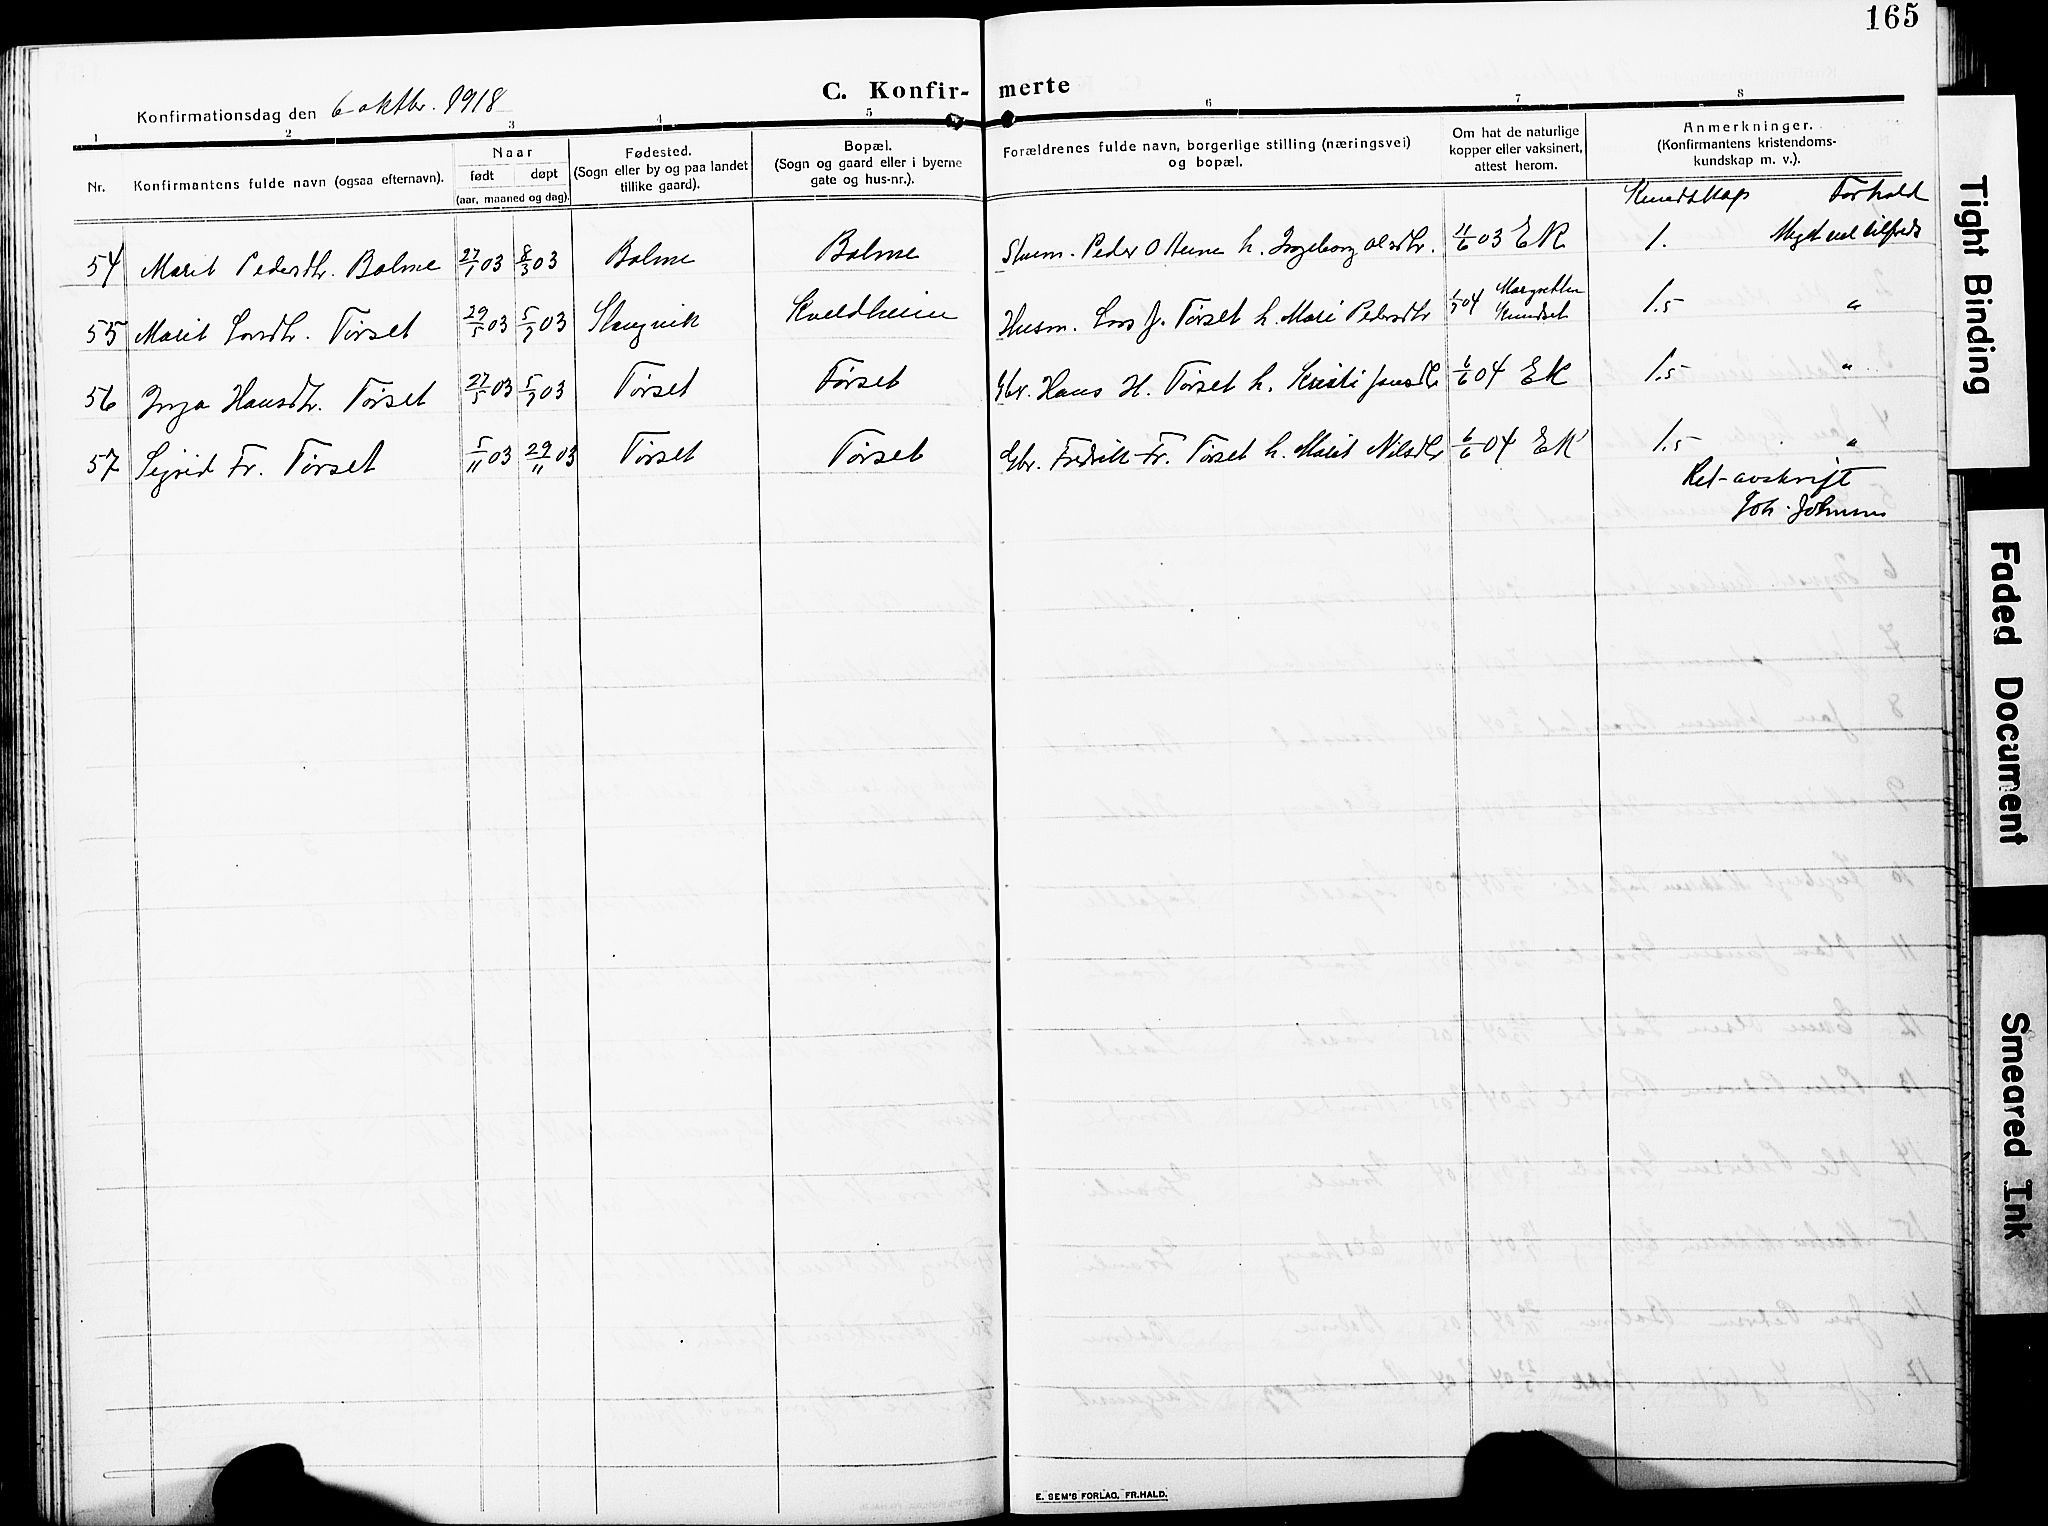 165
Konfirmationsdag den 6 oktbr. 1918
C. Konfir- merte
1 2 3 4 5 6 7 8
Nr.
Konfirmantens fulde navn (ogsaa efternavn).
Naar
født døpt
(aar, maaned og dag).
Fødested.
(Sogn eller by og paa landet
tillike gaard).
Bopæl.
(Sogn og gaard eller i byerne
gate og hus-nr.).
Forældrenes fulde navn, borgerlige stilling (næringsvei)
og bopæl.
Om hat de naturlige
kopper eller vaksinert,
attest herom.
Anmerkninger.
(Konfirmantens kristendoms-
kundskap m. v.).
Kundskap Forhold
54 Marit Pedersdtr. Bolme 27/1 03 8/3 03 Bolme Bolme Peder O h. Ingeborg Olsdtr. 11/6 03 EK 1. Meget vel tilfreds
55 Marit Larsdtr. Tørset 29/5 03 5/7 03 Stangvik Kveldheim Husm. Lars J. Tørset h. Mari Pedersdtr 04 1.5 "
56 Inga Hansdtr. Tørset 27/5 03 5/7 03 Tørset Tørset Gbr. Hans H. Tørset h. Kristi Jonsdtr 6/6 04 EK 1.5 "
57 Sigrid Fr. Tørset 5/11 03 29/11 03 Tørset Tørset Gbr. Fredrik Fr. Tørset h. Marit Nilsdtr 6/6 04 EK 1.5 "
Ret avskrift
Joh. Johnsen
E. SEM'S FORLAG, FR.HALD.
Tight Binding
Faded Document
Smeared Ink